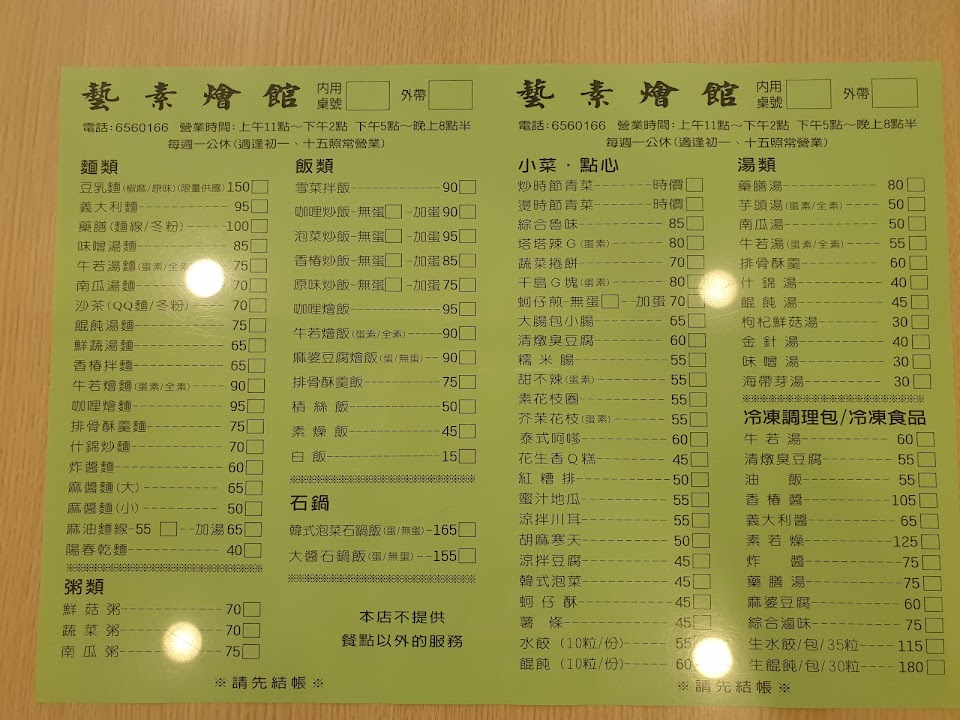 藝素燴館 內用桌號 外帶
電話:6560166 營業時間:上午11點～下午2點 下午5點～晚上8點半
每週一公休(適逢初一、十五照常營業)
麵類
豆乳麵(椒麻/原味)(限量供應)150
義大利麵 95
藥膳(麵線/冬粉) 100
味噌湯麵 85
牛若湯麵(蛋素/全素) 75
南瓜湯麵 70
沙茶(QQ麵/冬粉) 70
餛飩湯麵 75
鮮蔬湯麵 65
香椿拌麵 65
牛若燴麵(蛋素/全素) 90
咖哩燴麵 95
排骨酥羹麵 75
什錦炒麵 70
炸醬麵 60
麻醬麵(大) 65
麻醬麵(小) 50
麻油麵線-55 --加湯65
陽春乾麵 40
粥類
鮮菇粥 70
蔬菜粥 70
南瓜粥 75
飯類
雪菜拌飯 90
咖哩炒飯-無蛋 -加蛋90
泡菜炒飯-無蛋 -加蛋95
香椿炒飯-無蛋 -加蛋85
原味炒飯-無蛋 -加蛋75
咖哩燴飯 95
牛若燴飯(蛋素/全素) 90
麻婆豆腐燴飯(蛋/無蛋) 90
排骨酥羹飯 75
積絲飯 50
素燥飯 45
白飯 15
石鍋
韓式泡菜石鍋飯(蛋/無蛋)-165
大醬石鍋飯(蛋/無蛋)--155
本店不提供
餐點以外的服務
※請先結帳※
藝素燴館 內用桌號 外帶
電話:6560166 營業時間:上午11點～下午2點 下午5點～晚上8點半
每週一公休(適逢初一、十五照常營業)
小菜‧點心
炒時節青菜 時價
燙時節青菜 時價
綜合魯味 85
塔塔辣G(蛋素) 80
蔬菜捲餅 70
千島G塊(蛋素) 80
蚵仔煎-無蛋 --加蛋70
大腸包小腸 65
清燉臭豆腐 60
糯米腸 55
甜不辣(蛋素) 55
素花枝圈 55
芥茉花枝(蛋素) 55
泰式呵嗲 60
花生香Q糕 45
紅糟排 50
蜜汁地瓜 55
涼拌川耳 55
胡麻寒天 50
涼拌豆腐 45
韓式泡菜 45
蚵仔酥 45
薯條 45
水餃(10粒/份) 55
餛飩(10粒/份) 60
湯類
藥膳湯 80
芋頭湯(蛋素/全素) 50
南瓜湯 50
牛若湯(蛋素/全素) 55
排骨酥羹 60
什錦湯 40
餛飩湯 45
枸杞鮮菇湯 30
金針湯 40
味噌湯 30
海帶芽湯 30
冷凍調理包/冷凍食品
牛若湯 60
清燉臭豆腐 55
油飯 55
香椿醬 105
義大利醬 65
素若燥 125
炸醬 75
藥膳湯 75
麻婆豆腐 60
綜合滷味 75
生水餃/包/35粒 115
生餛飩/包/30粒 180
※請先結帳※